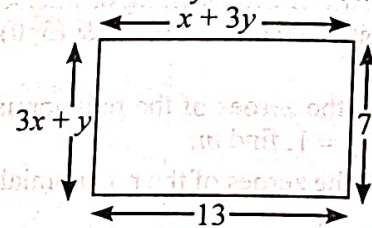 x + 3y
3x + y
7
13